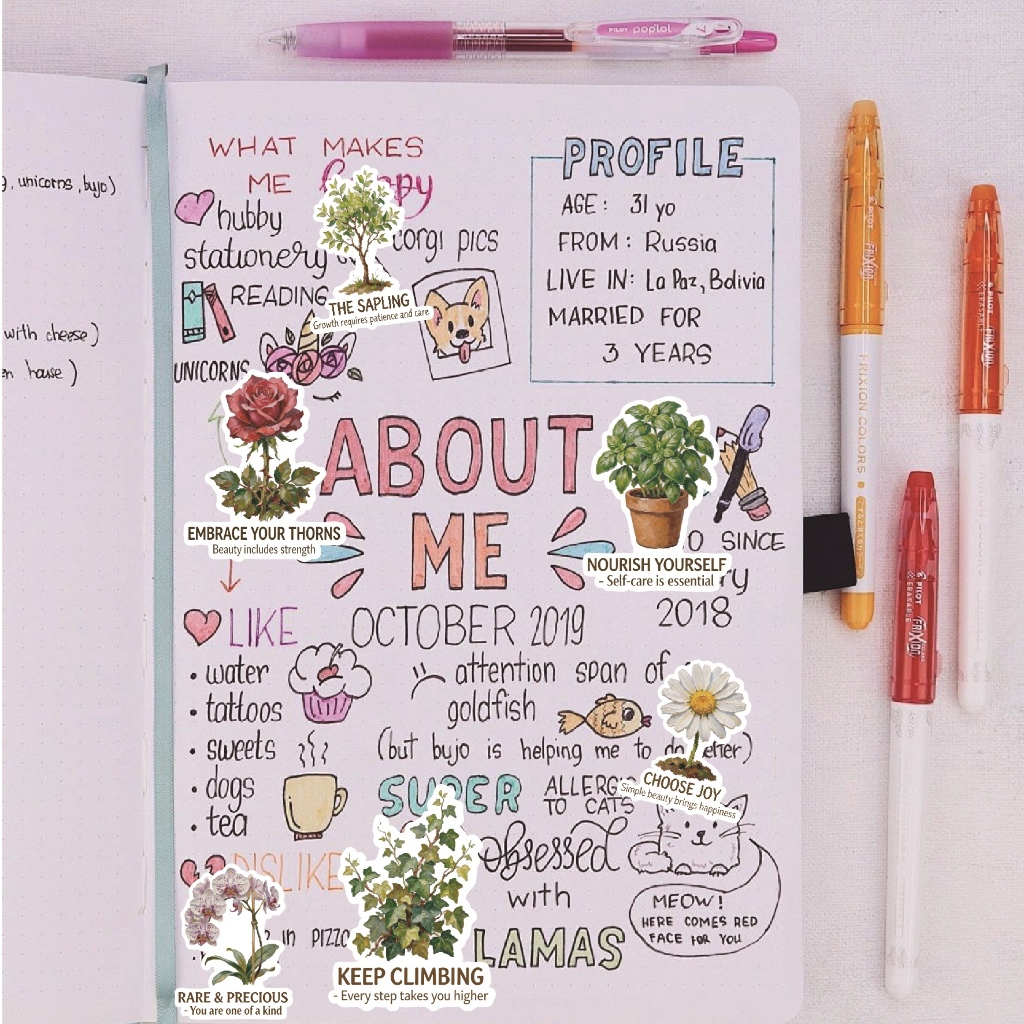 PILOT poplol 7
g, unicorns, bujo)
with cheese)
en house)
WHAT MAKES
ME
hubby
stationery
corgi pics
READING
UNICORNS
THE SAPLING
Growth requires patience and care
PROFILE
AGE: 31 yo
FROM: Russia
LIVE IN: La Paz, Bolivia
MARRIED FOR
3 YEARS
ABOUT
ME
EMBRACE YOUR THORNS
Beauty includes strength
NOURISH YOURSELF
- Self-care is essential
O SINCE
ry
2018
OCTOBER 2019
LIKE
• water
• tattoos
• sweets
• dogs
• tea
attention span of
goldfish
(but bujo is helping me to do better)
CHOOSE JOY
Simple beauty brings happiness
SUPER
ALLERGIC
TO CATS
obsessed
with
LAMAS
MEOW!
HERE COMES RED
FACE FOR YOU
DISLIKE
in PIZZ
RARE & PRECIOUS
- You are one of a kind
KEEP CLIMBING
- Every step takes you higher
PILOT FRIXION
FRIXION COLORS
PILOT
ERASABLE
FRIXION
PILOT
ERASABLE
FRIXION